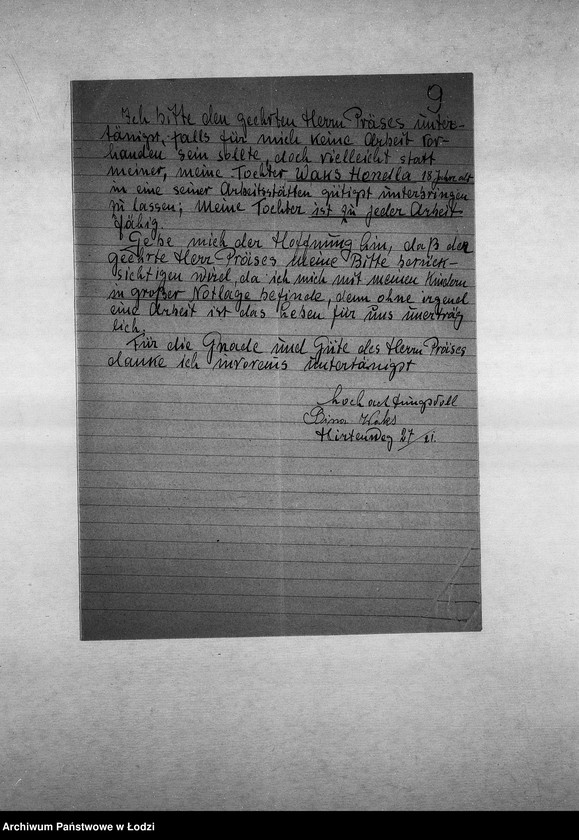 9
Ich bitte den geehrten Herrn Präses unter-
tänigst, falls für mich keine Arbeit vor-
handen sein sollte, doch vielleicht statt
meiner, meine Tochter Waks Honella 18 Jahre alt
in eine seiner Arbeitsstätten gütigst unterbringen
zu lassen; Meine Tochter ist zu jeder Arbeit
fähig.
Gebe mich der Hoffnung hin, daß der
geehrte Herr Präses meine Bitte berück-
sichtigen wird, da ich mich mit meinen Kindern
in großer Notlage befinde, denn ohne irgend
eine Arbeit ist das Leben für uns unerträg
lich.
Für die Gnade und Güte des Herrn Präses
danke ich invoraus untertänigst
hochachtungsvoll
Waks
Hirtenweg 27/21.
Archiwum Państwowe w Łodzi